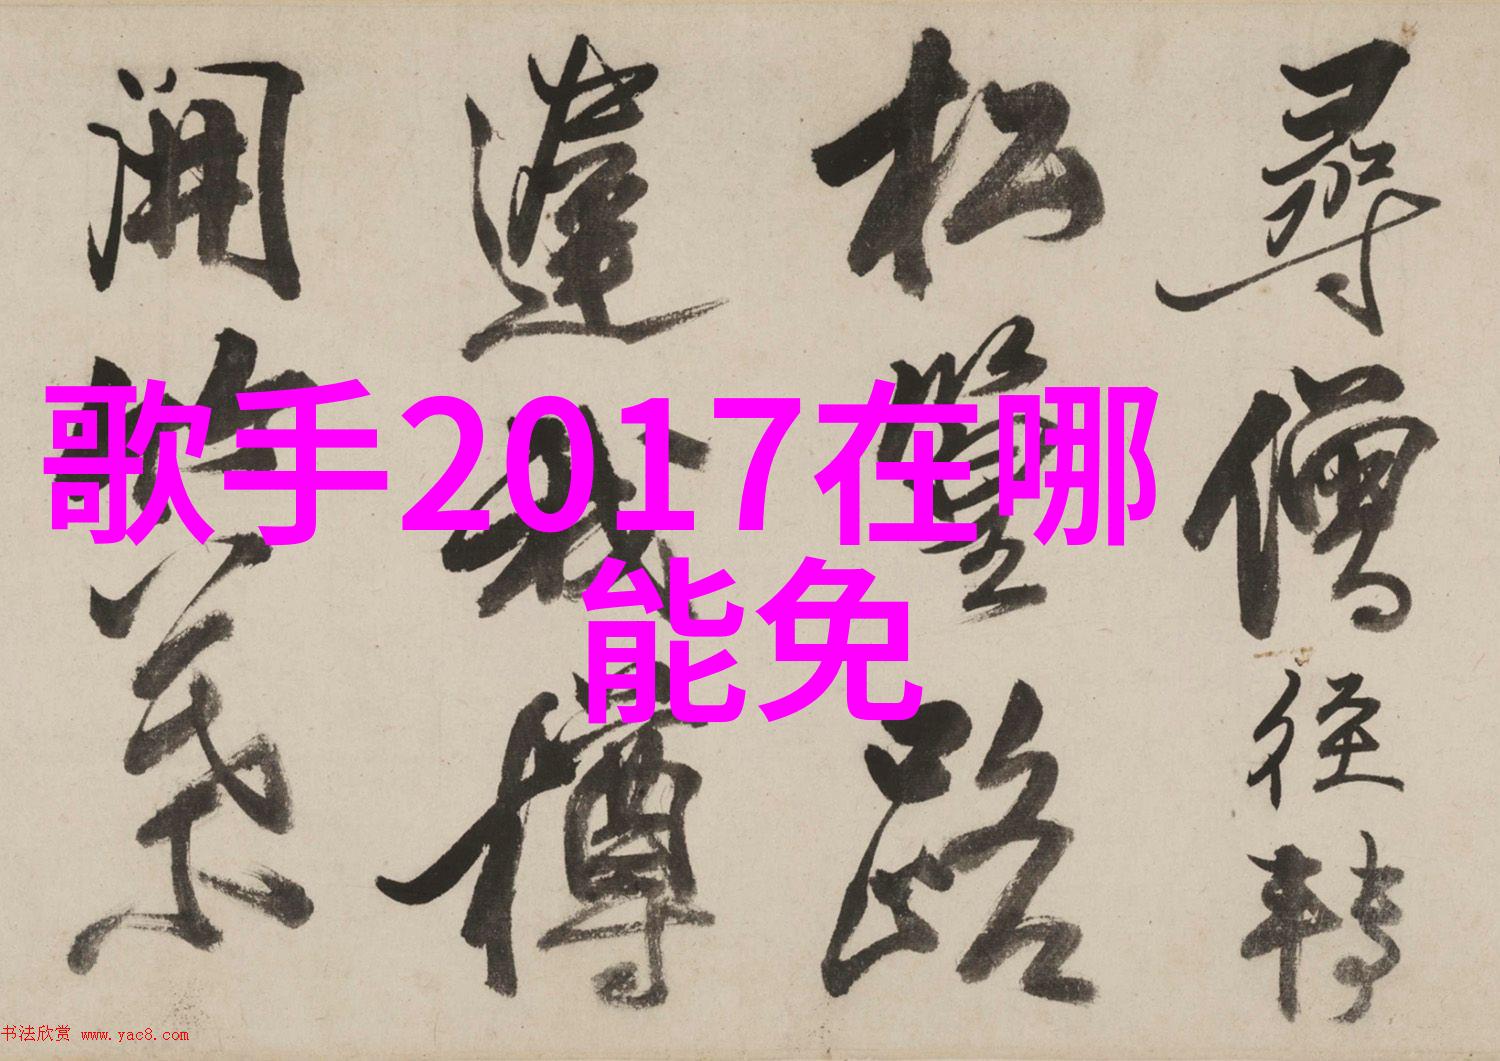 歌手2017在哪
能免
尋僧徑轉
松壑路
我樽
開
书法欣赏 www.yac8.com